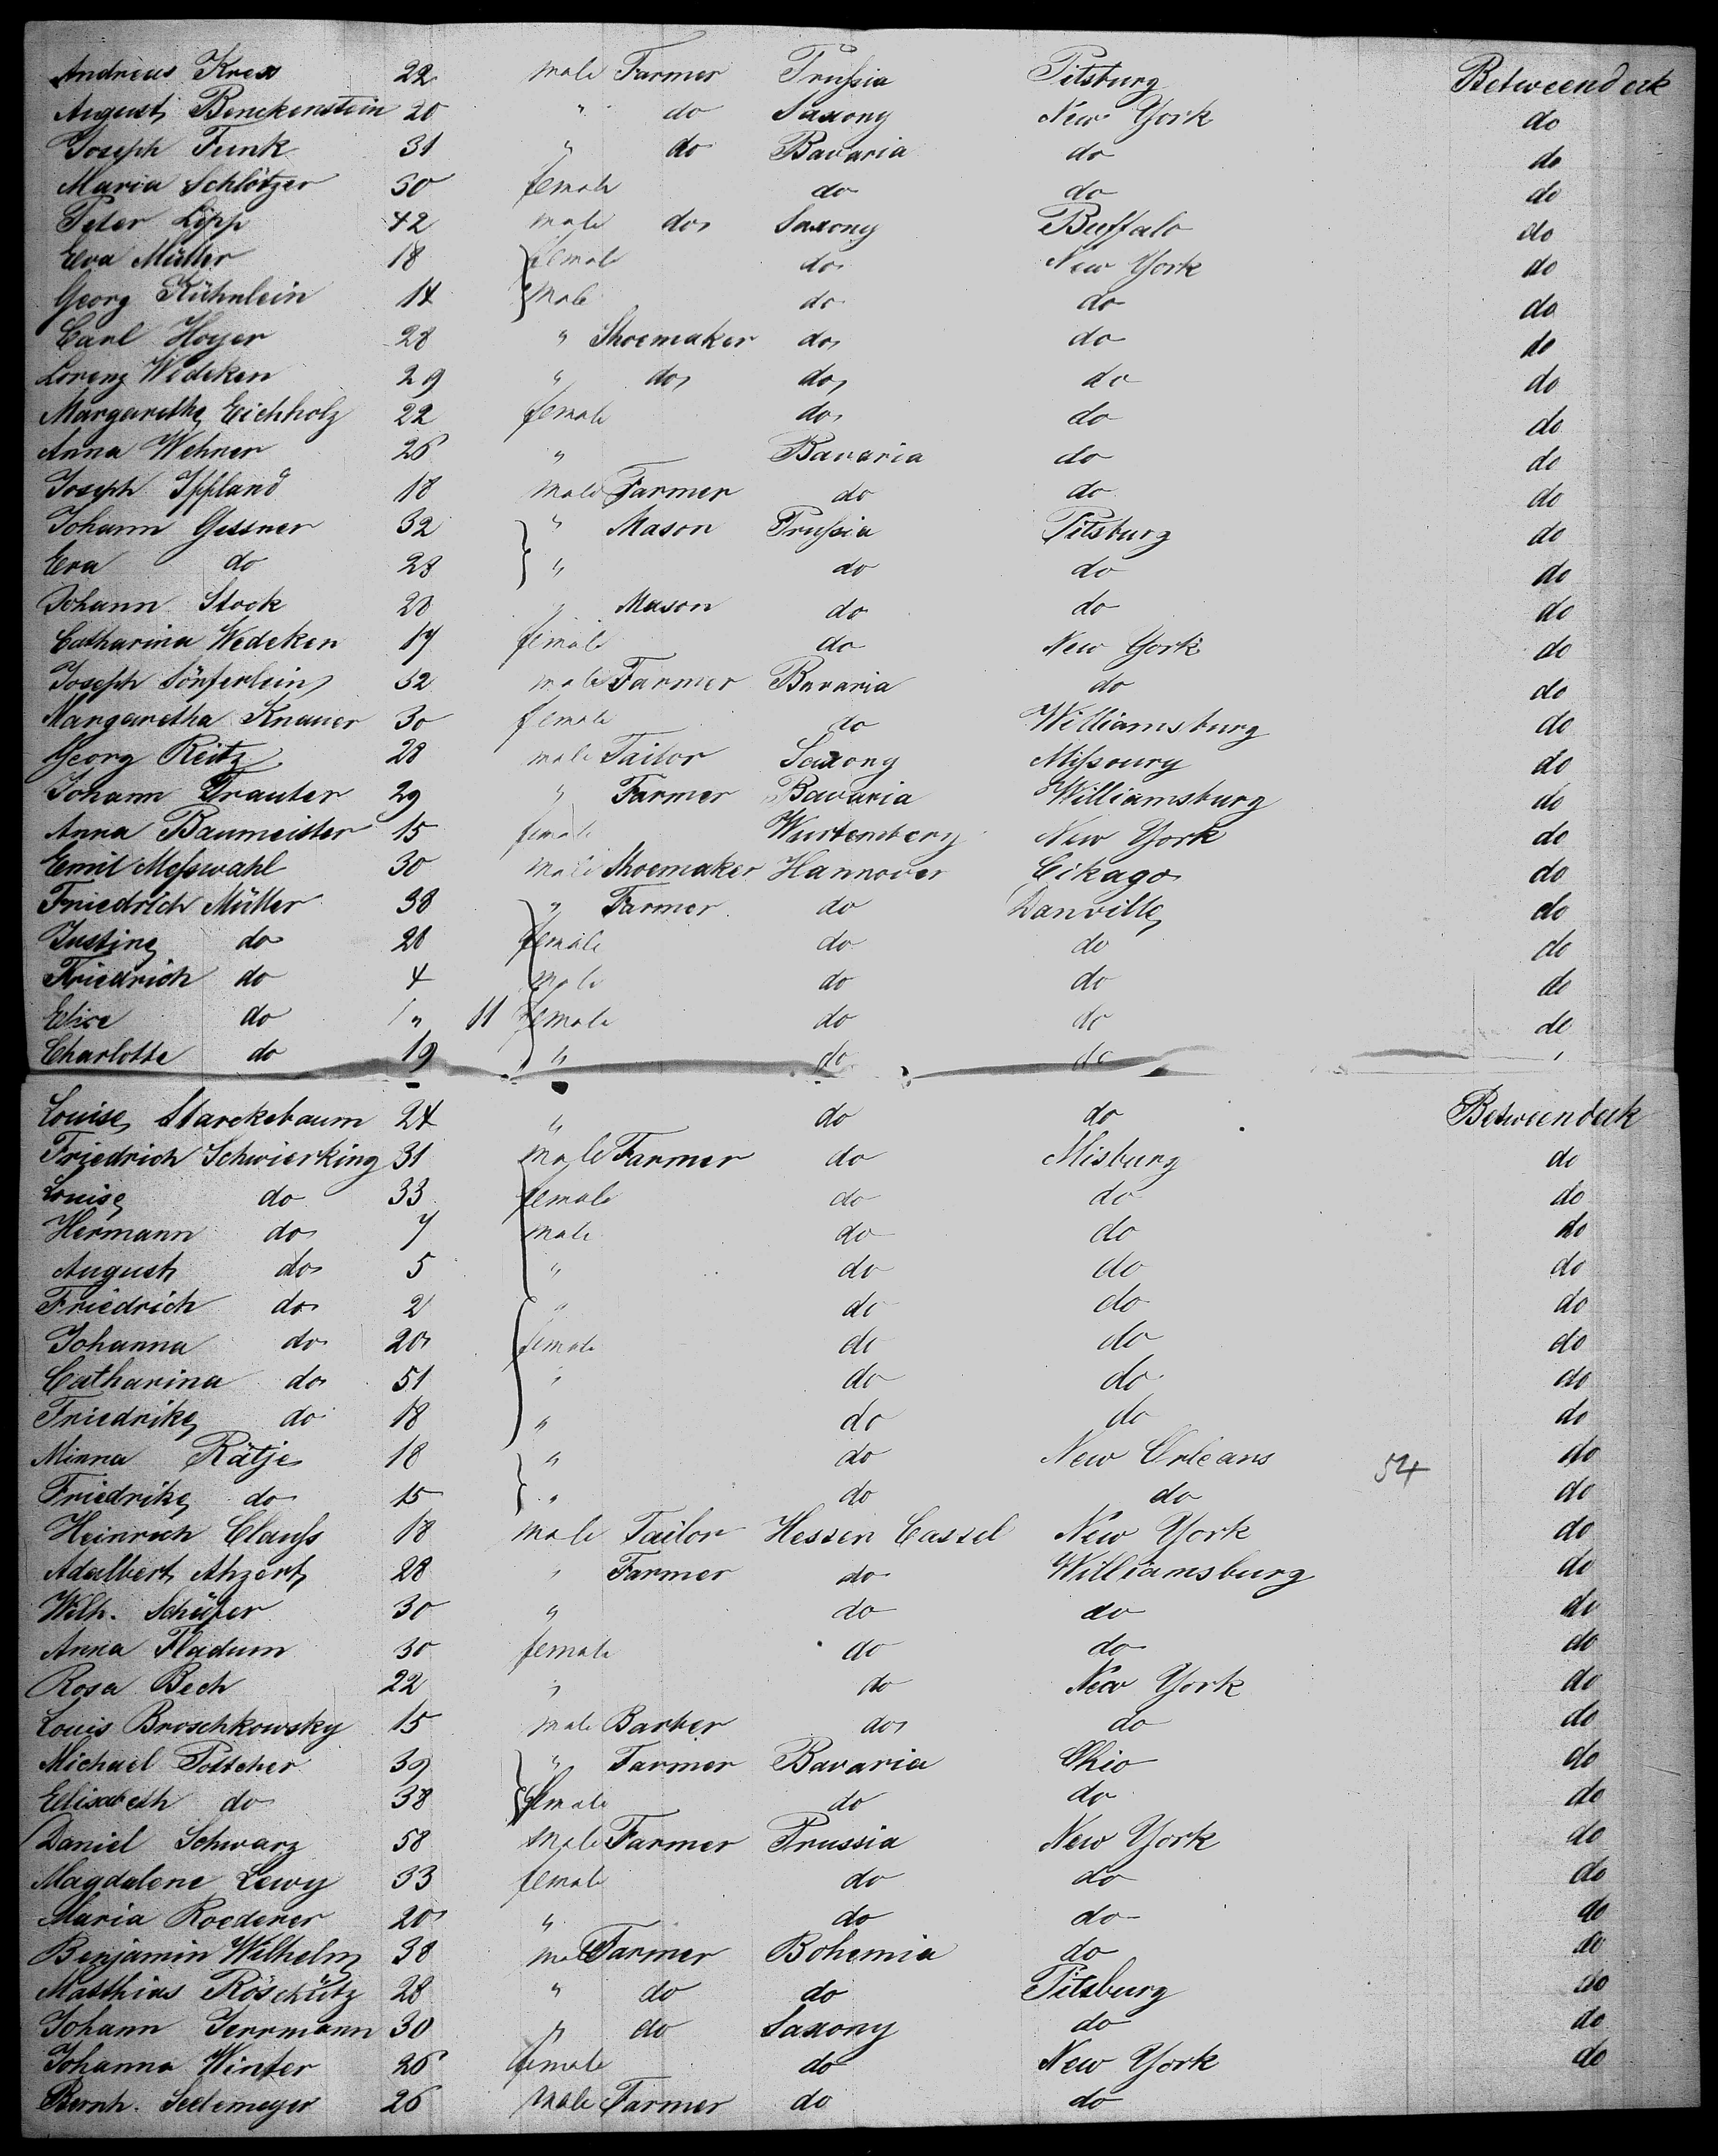 Andreas Krex 22 male Farmer Prußia Pitsburg Betweendeck
August Benckenstein 20 " do Saxony New York do
Joseph Funk 31 " do Bavaria do do
Maria Schlötzer 30 female do do do
Peter Lipp 42 male do Saxony Buffalo do
Eva Müller 18 female do New York do
Georg Kühnlein 14 male do do do
Carl Hoyer 28 " Shoemaker do do do
Lorenz Wedeken 29 " do do do do
Margarethe Eichholz 22 female do do do
Anna Wehner 26 " Bavaria do do
Joseph Iffland 18 male Farmer do do do
Johann Gessner 32 " Mason Prußia Pitsburg do
Eva do 28 " do do do
Johann Stock 28 " Mason do do do
Catharina Wedeken 17 female do New York do
Joseph Sörferlein 32 male Farmer Bavaria do do
Margaretha Knauer 30 female do Williamsburg do
Georg Reitz 28 male Tailor Saxony Mißoury do
Johann Trauter 29 " Farmer Bavaria Williamsburg do
Anna Baumeister 15 female Wurtemberg New York do
Emil Meßwahl 30 male Shoemaker Hannover Cikago do
Friedrich Müller 38 " Farmer do Danville do
Justine do 28 female do do do
Friedrich do 4 male do do do
Elise do " 11 female do do do
Charlotte do 19 " do do "
Louise Starckebaum 24 " do do Betweendeck
Friedrich Schwierking 31 male Farmer do Misburg do
Louise do 33 female do do do
Hermann do 7 male do do do
August do 5 " do do do
Friedrich do 2 " do do do
Johanna do 20 female do do do
Catharina do 51 " do do do
Friedrike do 18 " do do do
Minna Rätje 18 " do New Orleans do
54
Friedrike do 15 " do do do
Heinrich Clauß 18 male Tailor Hessen Cassel New York do
Adalbert Ahzert 28 " Farmer do Williamsburg do
Wilh. Schäfer 30 " do do do
Anna Fladum 30 female do do do
Rosa Bech 22 " do New York do
Louis Broschkowsky 15 male Barber do do do
Michael Pottcher 39 " Farmer Bavaria Ohio do
Elisabeth do 38 female do do do
Daniel Schwarz 58 male Farmer Prussia New York do
Magdalene Lewy 33 female do do do
Maria Roederer 20 " do do do
Benjamin Wilhelm 38 male Farmer Bohemia do do
Matthias Röschütz 28 " do do Pitsburg do
Johann Jerrmann 30 " do Saxony do do
Johanna Winter 26 female do New York do
Bernh. Seelemeyer 26 male Farmer do do